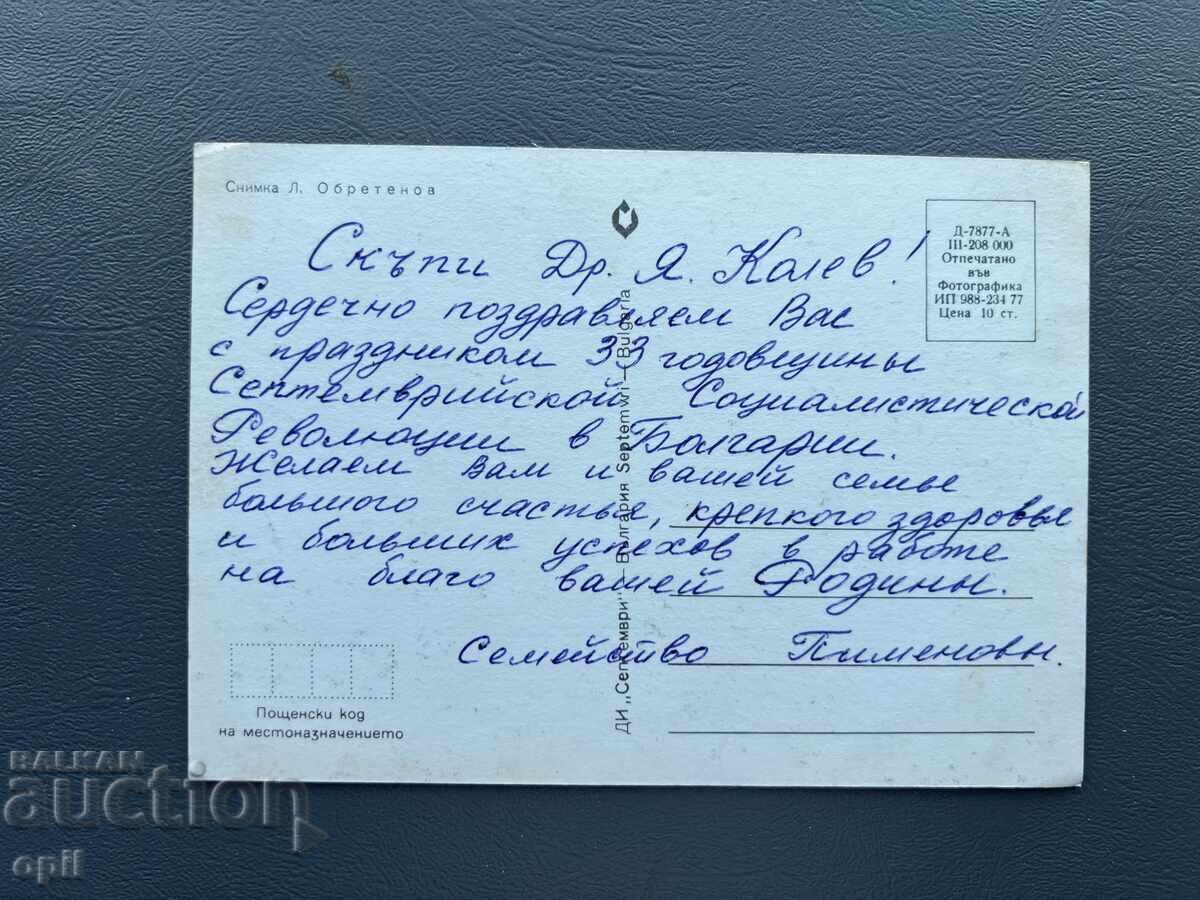 Снимка Л. Обретенов
Д-7877-А
III-208 000
Отпечатано
във
Фотографика
ИП 988-234 77
Цена 10 ст.
Скъпи Др. Я. Колев!
Сердечно поздравляем Вас
с праздником 33 годовщины
Септемврийской Социалистической
Революции в Болгарии.
Желаем Вам и вашей семье
большого счастья, крепкого здоровья
и больших успехов в работе
на благо вашей Родины.
Семейство Пименовы.
ДИ „Септември" — България Septemvri — (Bulgaria
Пощенски код
на местоназначението
BALKAN
auction
opil